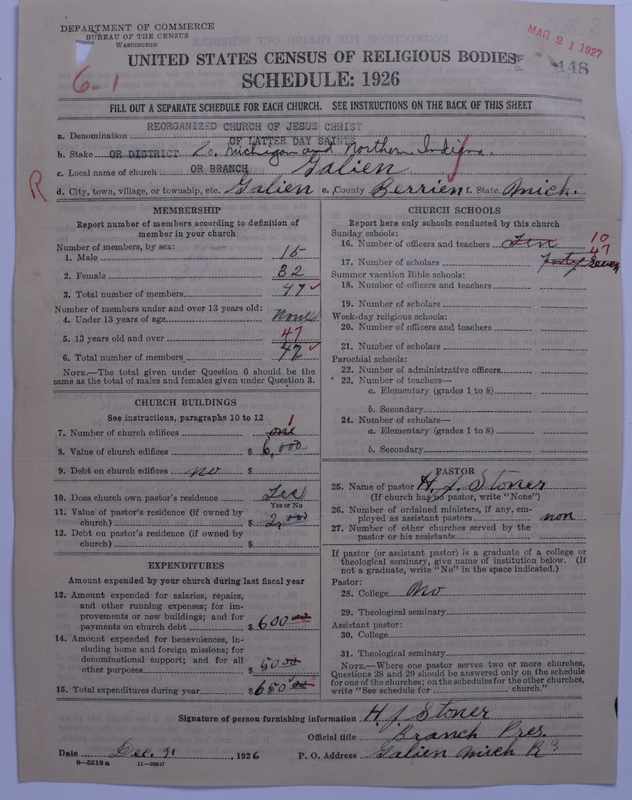 DEPARTMENT OF COMMERCE
BUREAU OF THE CENSUS
WASHINGTON
MAR 21 1927
448
6-1
UNITED STATES CENSUS OF RELIGIOUS BODIES
SCHEDULE: 1926
FILL OUT A SEPARATE SCHEDULE FOR EACH CHURCH. SEE INSTRUCTIONS ON THE BACK OF THIS SHEET
REORGANIZED CHURCH OF JESUS CHRIST
a. Denomination OF LATTER DAY SAINTS
b. Stake OR DISTRICT So. Michigan and Northern Indiana.
c. Local name of church OR BRANCH Galien
R
d. City, town, village, or township, etc. Galien e. County Berrien f. State Mich.
MEMBERSHIP
Report number of members according to definition of member in your church
Number of members, by sex:
1. Male 15
2. Female 32
3. Total number of members 47
Number of members under and over 13 years old:
4. Under 13 years of age None
5. 13 years old and over 47
6. Total number of members 47
NOTE.—The total given under Question 6 should be
same as the total of males and females given under Question 3.
CHURCH BUILDINGS
See instructions, paragraphs 10 to 12
7. Number of church edifices one 1
8. Value of church edifices $ 6,000
9. Debt on church edifices no $
10. Does church own pastor's residence Yes
Yes or No
11. Value of pastor's residence (if owned by
church) $ 2,000
12. Debt on pastor's residence (if owned by
church) $
EXPENDITURES
Amount expended by your church during last fiscal year
13. Amount expended for salaries, repairs,
and other running expenses; for im-
provements or new buildings; and for
payments on church debt $ 600 00
14. Amount expended for benevolences, in-
cluding home and foreign missions; for
denominational support; and for all
other purposes $ 50 00
15. Total expenditures during year $ 650 00
CHURCH SCHOOLS
Report here only schools conducted by this church
Sunday schools:
16. Number of officers and teachers Ten 10
17. Number of scholars Forty Seven 47
Summer vacation Bible schools:
18. Number of officers and teachers
19. Number of scholars
Week-day religious schools:
20. Number of officers and teachers
21. Number of scholars
Parochial schools:
22. Number of administrative officers
23. Number of teachers—
a. Elementary (grades 1 to 8)
b. Secondary
24. Number of scholars—
a. Elementary (grades 1 to 8)
b. Secondary
PASTOR
25. Name of pastor H. J. Stoner
(If church has no pastor, write "None")
26. Number of ordained ministers, if any, em-
ployed as assistant pastors non
27. Number of other churches served by the
pastor or his assistants
If pastor (or assistant pastor) is a graduate of a college or
theological seminary, give name of institution below. (If
not a graduate, write "No" in the space indicated.)
Pastor:
28. College No
29. Theological seminary
Assistant pastor:
30. College
31. Theological seminary
NOTE.—Where one pastor serves two or more churches,
Questions 28 and 29 should be answered only on the schedule
for one of the churches; on the schedules for the other churches,
write "See schedule for church."
Signature of person furnishing information H. J. Stoner
Official title Branch Pres.
Date Dec. 21, 1926 P. O. Address Galien Mich R
8-5518a